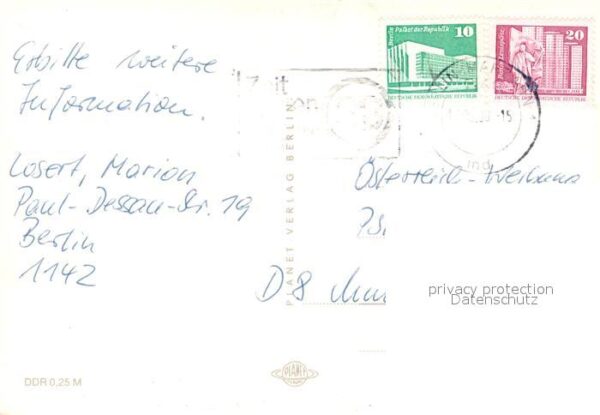 Erbitte weitere
Information.
Losert, Marion
Paul-Dessau-Str. 19
Berlin
1142
Berlin Palast der Republik
10
DEUTSCHE DEMOKRATISCHE REPUBLIK
Berlin Leninplatz
20
DEUTSCHE DEMOKRATISCHE REPUBLIK
Österreich-Werbung
D8
PLANET VERLAG BERLIN
privacy protection
Datenschutz
PLANET
DDR 0,25 M